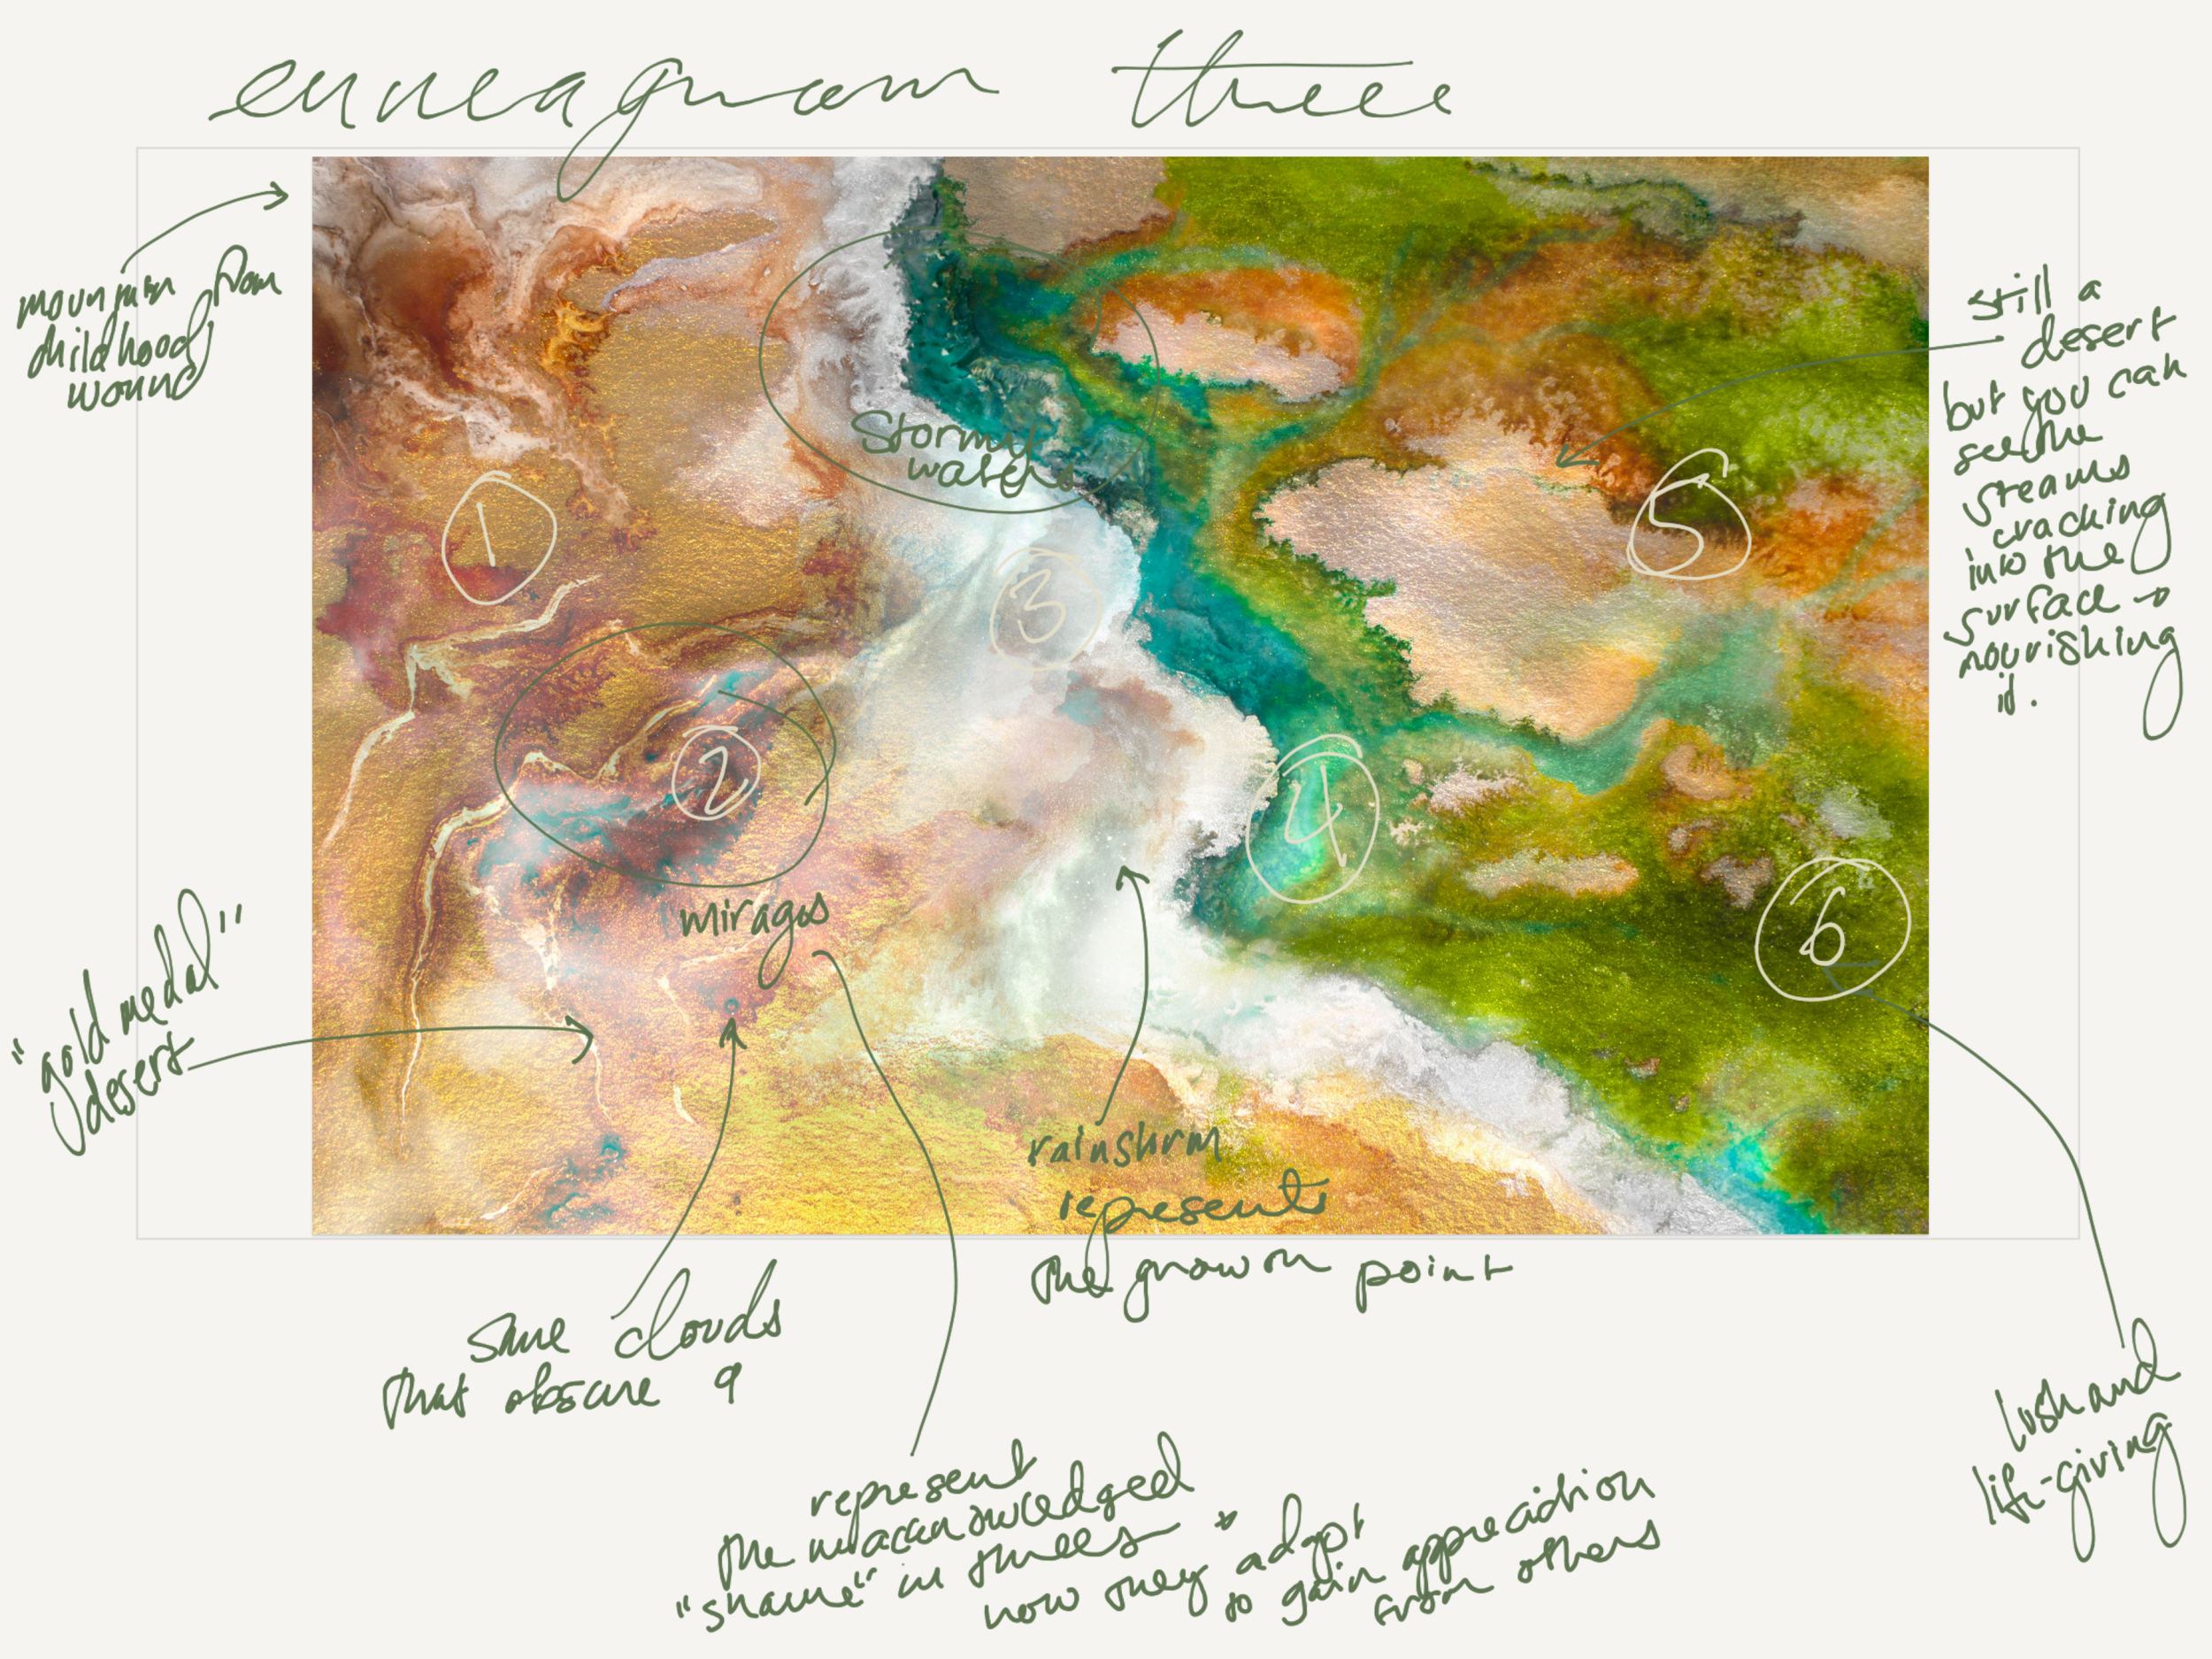 enneagram three
mountain from
childhood
wound
still a
desert
but you can
see the
streams
cracking
into the
surface →
nourishing
it.
Stormy
waters
1
5
3
2
4
6
mirages
"gold medal"
desert
rainstorm
represents
the growth point
same clouds
that obscure 9
lush and
life-giving
represent
the unacknowledged
"shame" in threes *
how they adapt
to gain appreciation
from others